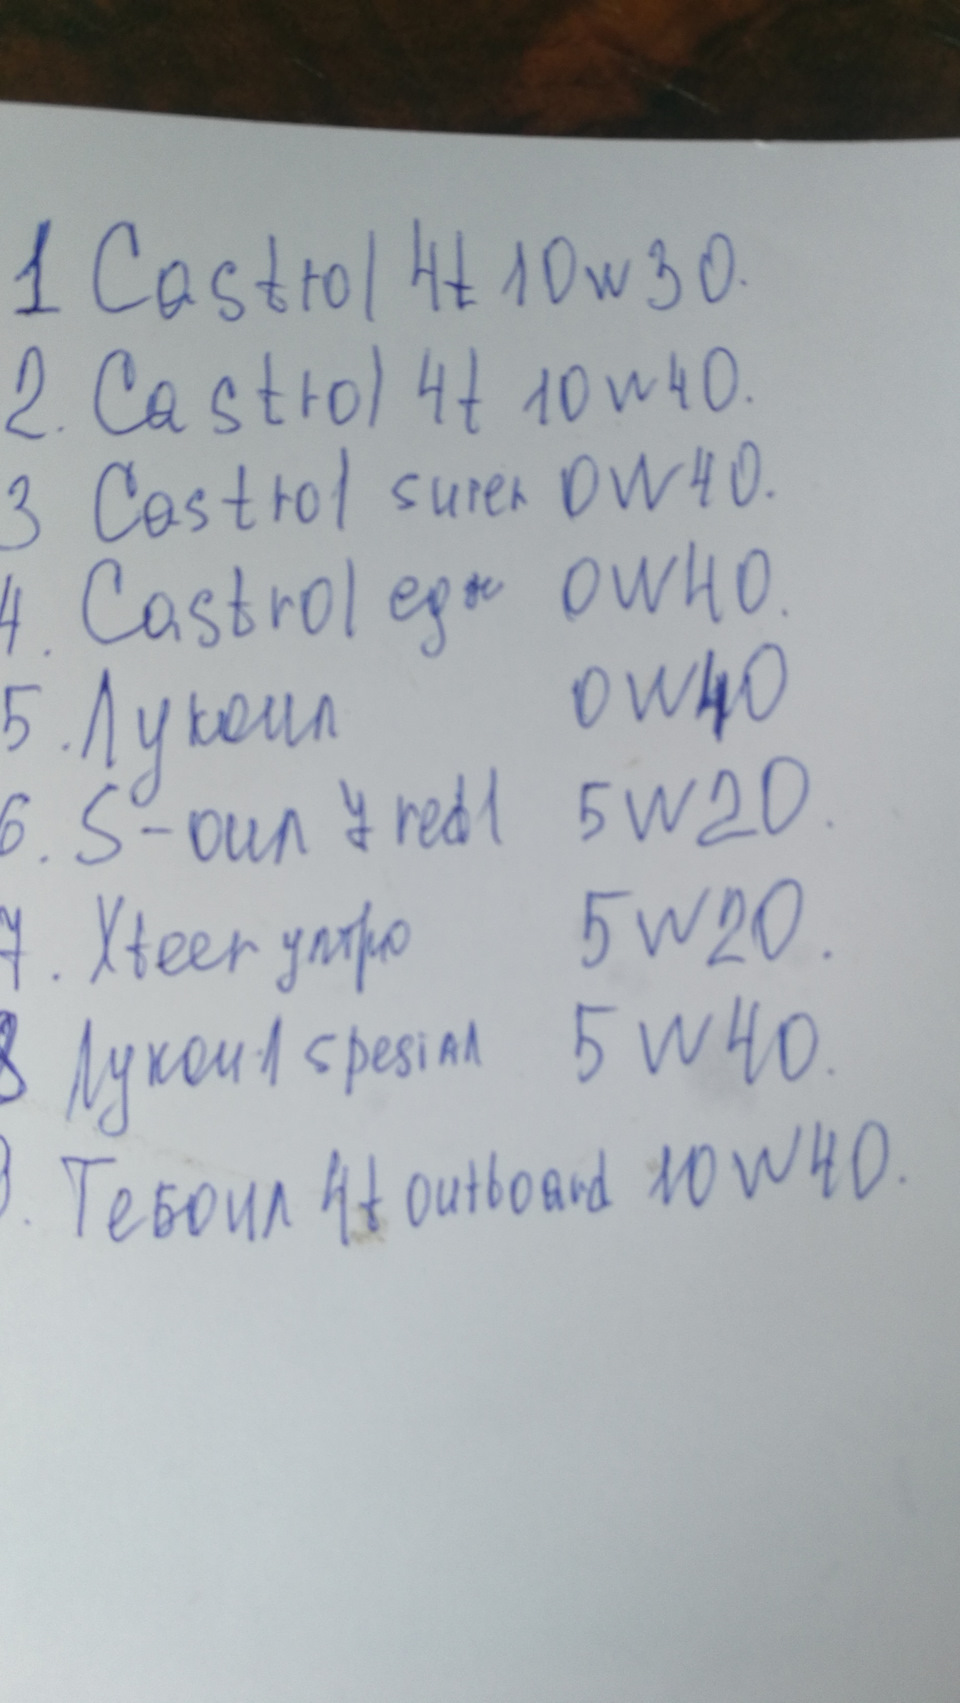 1 Castrol 4t 10w30.
2. Castrol 4t 10w40.
3 Castrol 0W40.
4. Castrol 0W40.
5. Лукоил 0W40
6. S-оил 7 red1 5W20.
7. Xteer ултро 5W20.
8 Лукоил spesiал 5W40.
9. Тебоил 4t outboard 10W40.